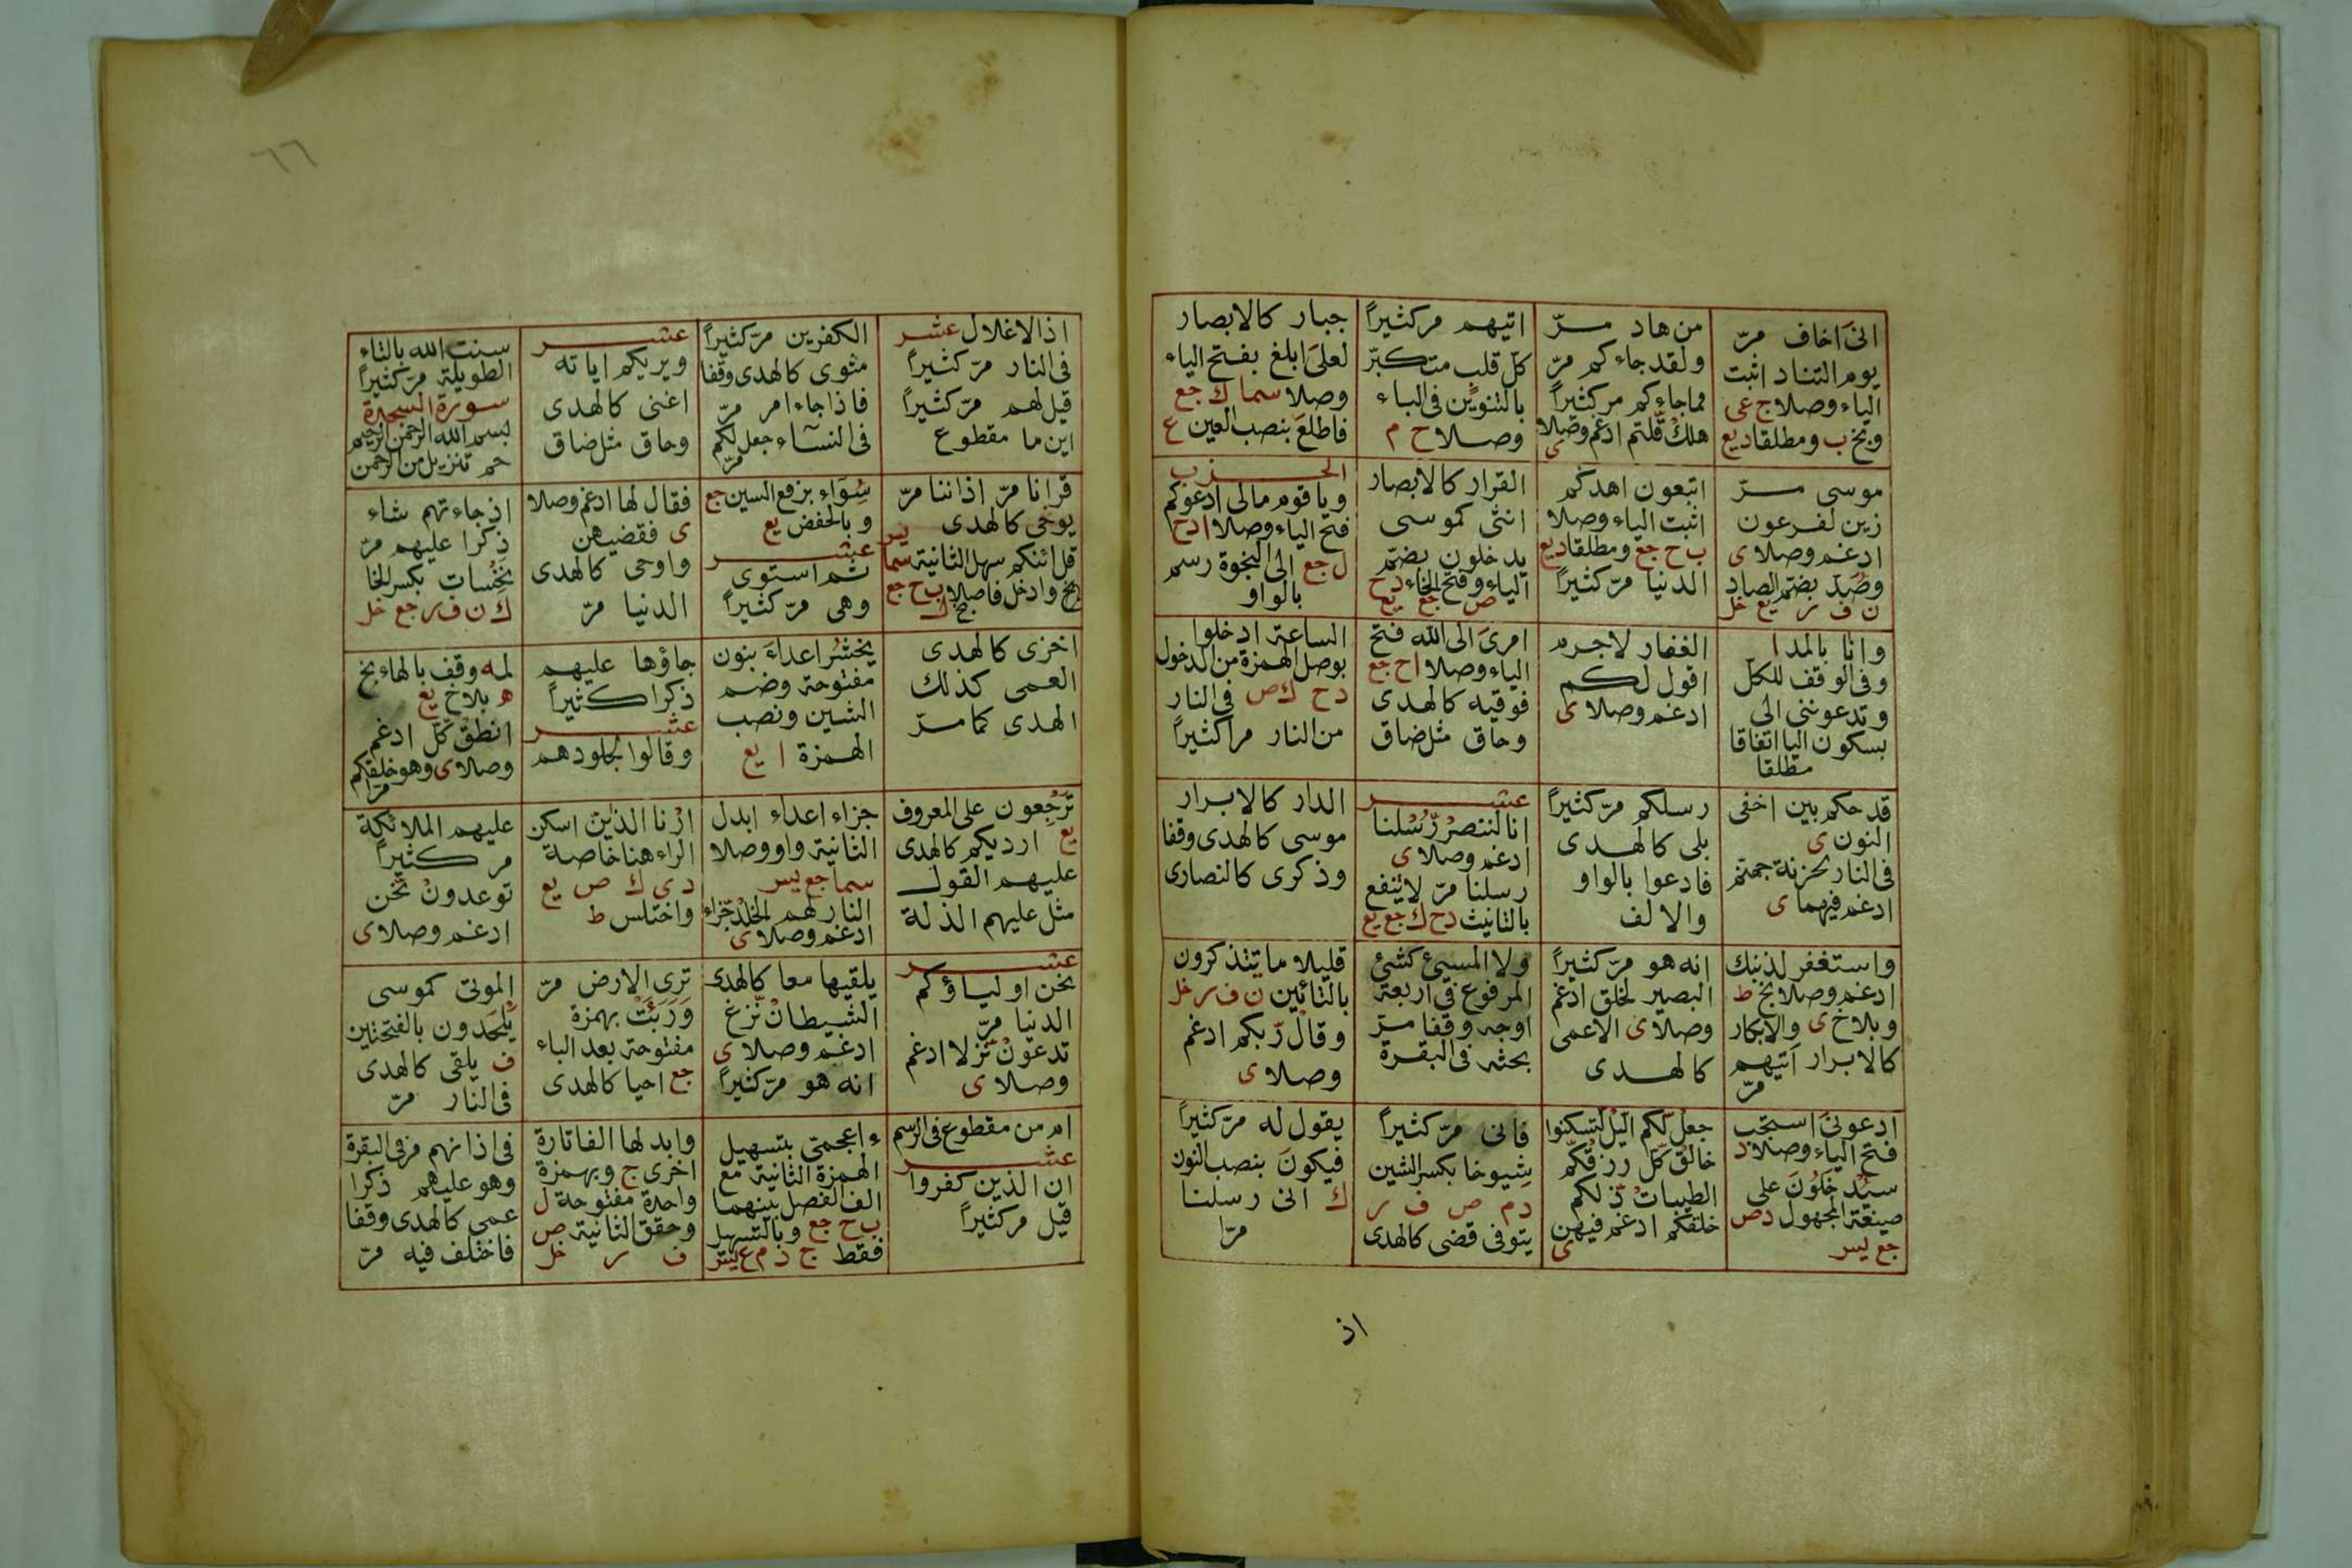 انى اخاف مرّ
يوم التناد اثبت
الياء وصلا ج عى
وبخ ب ومطلقا د يع
من هاد مرّ
ولقد جاءكم مرّ
مما جاءكم مر كثيراً
هلك قلتم ادغم وصلا ى
اتيهم مر كثيراً
كل قلب متكبّر
بالتنوين فى الباء
وصلا ح م
جبار كالابصار
لعلى ابلغ بفتح الياء
وصلا سما ك جع
فاطلعَ بنصب العين ع
موسى مرّ
زين لفرعون
ادغم وصلا ى
وصُدّ بضم الصاد
ن ف ر يع خل
اتبعون اهدكم
اثبت الياء وصلا
ب ح جع ومطلقا د يع
الدنيا مرّ كثيراً
القرار كالابصار
انثى كموسى
يدخلون بضم
الياء وفتح الخاء د ح
ص جع يع
الحزب
ويا قوم مالى ادعوكم
فتح الياء وصلا ا د ح
ل جع الى النجوة رسم
بالواو
وانا بالمد ا
وفى الوقف للكلّ
وتدعوننى الى
بسكون اليا اتفاقا
مطلقا
الغفار لاجرم
اقول لكم
ادغم وصلا ى
امرىَ الى الله فتح
الياء وصلا ا ح جع
فوقيه كالهدى
وحاق مثل ضاق
الساعة ادخلوا
بوصل الهمزة من الدخول
د ح ك ص فى النار
من النار مرا كثيراً
قد حكم بين اخفى
النون ى
فى النار لخزنة جهنم
ادغم فيهما ى
رسلكم مرّ كثيراً
بلى كالهدى
فادعوا بالواو
والالف
عشر
انا لننصر رسلنا
ادغم وصلا ى
رسلنا مرّ لا ينفع
بالتانيث د ح ك جع يع
الدار كالابرار
موسى كالهدى وقفا
وذكرى كالنصارى
واستغفر لذنبك
ادغم وصلا بخ ط
وبلا خ ى والابكار
كالابرار اتيهم
مرّ
انه هو مرّ كثيراً
البصير لخلق ادغم
وصلا ى الاعمى
كالهدى
ولا المسيئ كشئ
المرفوع فى اربعة
اوجه وقفا مرّ
بحثه فى البقرة
قليلا ما يتذكرون
بالتائين ن ف ر خل
وقال ربكم ادغم
وصلا ى
ادعونى استجب
فتح الياء وصلا د
سيُدخَلون على
صيغة المجهول د ص
جع يس
جعل لكم اليل لتسكنوا
خالق كل رزقكم
الطيبات ذلكم
خلقكم ادغم فيهن
ى
فانى مرّ كثيراً
شيوخا بكسر الشين
د م ص ف ر
يتوفى قضى كالهدى
يقول له مرّ كثيراً
فيكونَ بنصب النون
ك انى رسلنا
مرّا
اذ
٦٦
اذ الاغلال عشر
فى النار مرّ كثيراً
قيل لهم مرّ كثيراً
اين ما مقطوع
الكفرين مرّ كثيراً
مثوى كالهدى وقفا
فاذا جاء امر مرّ
فى النساء جعل لكم
مرّ
عشر
ويريكم اياته
اغنى كالهدى
وحاق مثل ضاق
سنت الله بالتاء
الطويلة مرّ كثيراً
سورة السجدة
بسم الله الرحمن الرحيم
حم تنزيل من الرحمن
قرانا مرّ اذاننا مرّ
يوحى كالهدى
قل ائنكم سهل الثانية سما يس
بخ وادخل فاصلا ب ح جع
سَوَاء برفع السين جع
وبالخفض يع
عشر
ثم استوى
وهى مرّ كثيراً
فقال لها ادغم وصلا
ى فقضيهن
واوحى كالهدى
الدنيا مرّ
اذ جاءتهم شاء
ذكرا عليهم مرّ
نحسات بكسر الحا
ك ن ف ر جع خل
اخزى كالهدى
العمى كذلك
الهدى كما مرّ
نحشُر اعداءَ بنون
مفتوحة وضم
الشين ونصب
الهمزة ا يع
جاؤها عليهم
ذكرا كثيراً
عشر
وقالوا لجلودهم
لمه وقف بالهاء بخ
ه بلا خ يع
انطق كل ادغم
وصلا ى وهو خلقكم
مرّا
تَرجِعون على المعروف
يع ارديكم كالهدى
عليهم القول
مثل عليهم الذلة
جزاء اعداء ابدل
الثانية واو وصلا
سما جع يس
النار لهم الخلد جزاء
ادغم وصلا ى
ارنا الذين اسكن
الراء هنا خاصة
د ى ك ص يع
واختلس ط
عليهم الملائكة
مر كثيراً
توعدون نحن
ادغم وصلا ى
عشر
نحن اولياؤكم
الدنيا مرّ
تدعون نزلا ادغم
وصلا ى
يلقيها معا كالهدى
الشيطان نزغ
ادغم وصلا ى
انه هو مرّ كثيراً
ترى الارض مرّ
وَرَبَئَتْ بهمزة
مفتوحة بعد الباء
جع احيا كالهدى
الموتى كموسى
يلحدون بالفتحتين
ف يلقى كالهدى
فى النار مرّ
ام من مقطوع فى الرسم
عشر
ان الذين كفروا
قيل مر كثيراً
ءاعجمى بتسهيل
الهمزة الثانية مع
الف الفصل بينهما
ب ح جع وبالتسهيل
فقط ج د م ع يس
وابدلها الفا تارة
اخرى ج وبهمزة
واحدة مفتوحة ل
وحقق الثانية ص
ف ر خل
فى اذانهم مر فى البقرة
وهو عليهم ذكرا
عمى كالهدى وقفا
فاختلف فيه مرّ